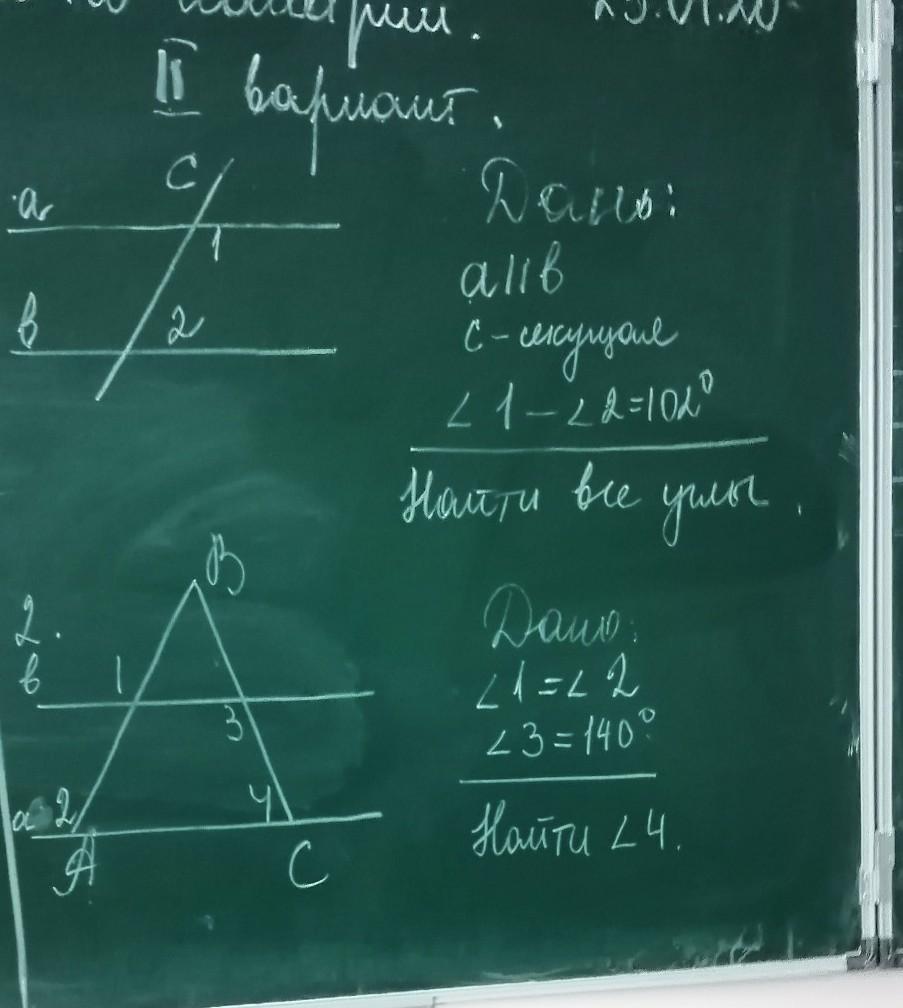 II вариант.
c
a
1
b
2
Дано:
a||b
c - секущая
∠1 - ∠2 = 102°
Найти все углы.
2.
B
b
1
3
a
2
4
A
C
Дано:
∠1 = ∠2
∠3 = 140°
Найти ∠4.